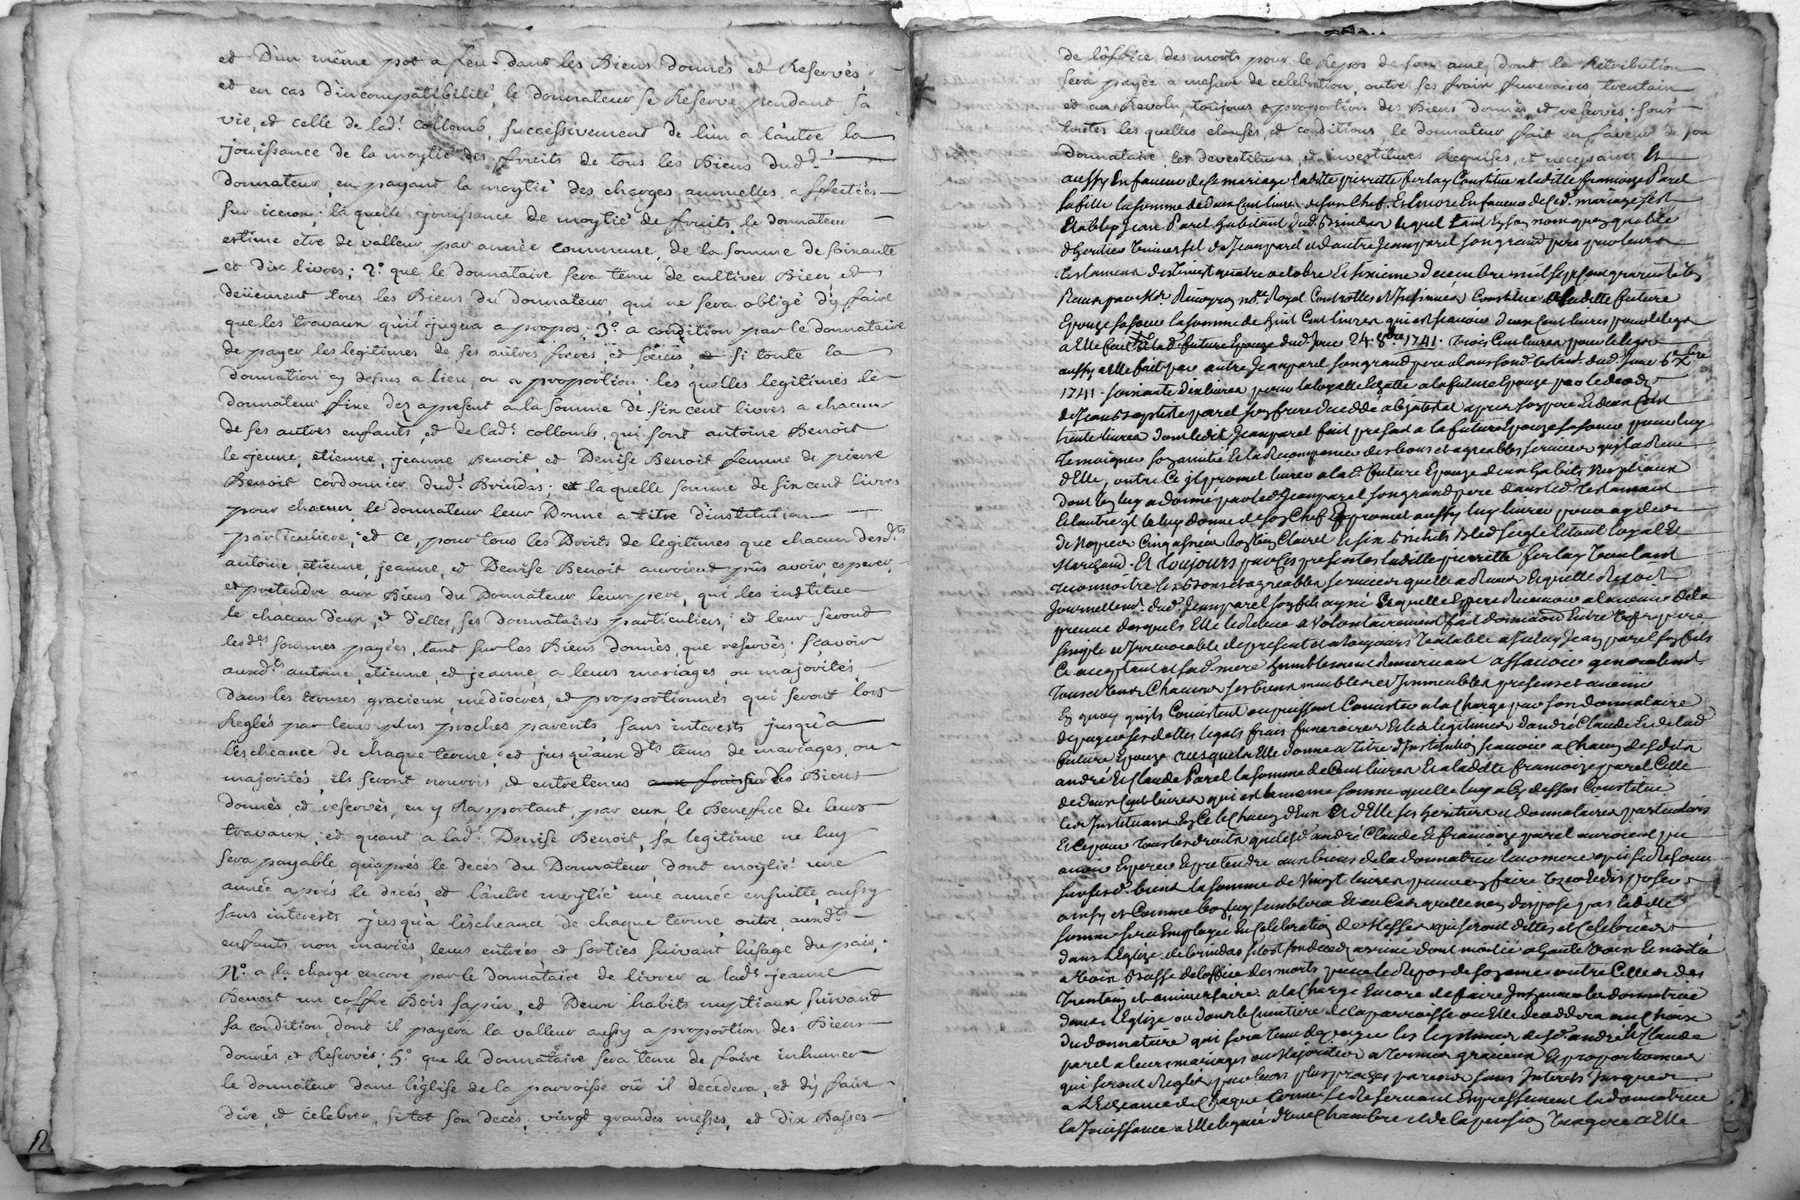 et D'un même pot a feu dans les Biens donnés et Reservés
et en cas d'incompatibilité, le donnateur se Reserve pendant sa
vie, et celle de lad.t collomb, successivement de l'un a l'autre la
jouissance de la moytié des fruits de tous les Biens dud.t
donnateur, en payant la moytié des charges annuelles affectées
sur iceux; laquelle jouissance de moytié de fruits, le donnateur
estime etre de valleur par année commune, de la somme de soixante
et dix livres; 2.o que le donnataire sera tenu de cultiver Bien et
deüement tous les Biens du donnateur, qui ne sera obligé d'y faire
que les travaux qu'il jugera a propos; 3.o a condition par le donnataire
de payer les legitimes de ses autres freres, et soeurs, si toute la
donnation cy dessus a lieu, ou a proportion; les quelles legitimes le
donnateur fixe des apresent a la somme de six cent livres a chacun
de ses autres enfants, et de lad.t collomb, qui sont antoine Benoit
le jeune, etienne, jeanne Benoit, et Denise Benoit femme de pierre
Benoit cordonnier dud.t Brindas; et la quelle somme de six cent livres
pour chacun, le donnateur leur Donne a titre d'institution
particuliere; et ce, pour tous les Droits de legitimes que chacun desd.ts
antoine, etienne, jeanne, et Denise Benoit auroient pus avoir, esperer,
et pretendre aux Biens du Donnateur leur pere, qui les institue
le chacun d'eux, et d'elles, ses donnataires particuliers; et leur seront
lesd.es sommes payées, tant sur les Biens donnés, que reservés, scavoir
auxd.ts antoine, etienne, et jeanne, a leurs mariages, ou majorités,
dans les termes gracieux, mediocres, et proportionnés qui seront lors
Reglés par leurs plus proches parents, sans interests jusqu'a
l'escheance de chaque terme; et jusqu'auxd.ts tems de mariages, ou
majorités, ils seront nourris, et entretenus aux frais sur les Biens
donnés, et reservés, en y Rapportant, par eux, le Benefice de leurs
travaux; et quant a lad.t Denise Benoit, sa legitime ne luy
sera payable qu'aprés le decès du Donnateur, dont moytié une
année après le decès, et l'autre moytié une année ensuitte, aussy
sans interests jusqu'a l'escheance de chaque terme, outre auxd.ts
enfants non mariés, leurs entrées, et sorties suivant l'usage du païs;
4.o a la charge encore par le donnataire de livrer a lad.t jeanne
Benoit un coffre Bois sapin, et Deux habits nuptiaux suivant
sa condition, dont il payera la valleur aussy a proportion des Biens
donnés, et Reservés; 5.o que le donnataire sera tenu de faire inhumer
le donnateur dans l'église de la parroisse où il decedera, et d'y faire
dire, et celebrer, sitot son decès, vingt grandes messes, et dix Basses
de l'office des morts pour le Repos de son ame, dont la Retribution
sera payée a mesure de celebration, outre ses frais funeraires, trentain
et an Revolu, toujours a proportion des Biens donnés, et reservés; sous
toutes les quelles clauses, et conditions le donnateur fait en faveur de son
donnataire les devestitures, et investitures Requises, et necessaires Et
aussy En faveur de ce mariage ladite pierrette ferlay Constitue a laditte françoize Parel
sa fille la somme de deux Cent livres de son Chef. Et Encore En faveur de Ced. mariage s'est
Etably Jean Parel habitant dud. Brindas lequel tant En son nom que En qualité
d'heritier universel de Jean parel et d'autre Jean parel son grand pere par leurs
testaments des vingt quatre octobre Et sixieme decembre mil sept cent quarante Un
Receus par M.e no.re Royal Controllés et Insinués Constitue a laditte future
Epouze sa soeur la somme de huit Cent livres qui est scavoir deux Cent livres pour le legs
a Elle fait lad. future Epouze dud. Jour 24. 8bre 1741. trois Cent livres pour le legs
aussy a Elle fait par autre Jean parel son grand pere dans sond. testam.t dud. Jour 6e Xbre
1741. soixante dix livres pour la part Echeüe a la future Epouze par le deceds
de Jean Baptiste parel son frere decedé ab intestat apres son pere Et deux Cent
trente livres dont ledit Jean parel fait present a la future Epouze sa soeur pour luy
temoigner son amitié Et la Recompenser des bons et agreables services qu'il a Receu
d'Elle, outre Ce il promet livrer a la d. future Epouze deux habits Nuptiaux
dont l'un luy a donné par led. Jean parel son grand pere dans led. testament
Et l'autre il le luy donne de son Chef Et promet aussy luy livrer
Marchand. Et toujours par Ces presentes laditte pierrette ferlay voulant
reconnoitre les bons et agreables services quelle a Receus Et quelle Reçoit
Journellem.t dud. Jean parel son fils ayné Et quelle Espere Recevoir a l'avenir de la
preuve desquels Elle le Releve a volontairement fait donnation Entre vifs pure
simple et Irrevocable des present et a toujours valable audit Jean parel son fils
Ce acceptant et sad. mere humblement Remerciant assavoir generalement
tous et uns Chacuns ses biens meubles et Immeubles presens et avenir
En quoy qu'ils Consistent ou puissent Consister a la Charge par son donnataire
de payer ses dettes legats frais funeraires Et les legitimes d'andré Claude Et de lad.
future Epouze auxquels Elle donne a titre d'Institution scavoir a Chacun desdits
andré Et Claude Parel la somme de Cent livres Et a ladite françoize parel Celle
de deux Cent livres qui est la meme somme quelle luy a Cy dessus Constitué
les Instituant En Ce le Chacun d'Eux Et d'Elle ses heritiers et donnataires particuliers
Et Ce pour tous les droits que lesd. andré Claude Et françoize parel auroient pu
avoir Esperer Et pretendre aux biens de la donnatrice leur mere qui se Reserve
sur sesd. biens la somme de vingt livres pour En faire Et disposer
ainsy et Comme bon luy semblera Et au Cas quelle n'en dispose pas laditte
somme sera Employée En Celebration de Messes qui seront dittes et Celebrées
dans l'Eglize de brindas sitot son deceds arrivé dont moitié a haute voix Et moitié
a voix Basse de l'office des morts pour le Repos de son ame outre Celles des
trentain et anniversaire. a la Charge Encore de faire Inhumer la donnatrice
dans l'Eglize ou dans le Cimetiere de la parroisse ou Elle decedera au Choix
du donnataire qui sera tenu de payer les legitimes desd. andré Et Claude
parel a leurs mariages ou Majorités a termes gracieux Et proportionnés
qui seront Reglés par leurs plus proches parens sans Interets Jusques
a l'Echeance de Chaque terme se Reservant Expressement la donnatrice
la Jouissance a Elle leguée d'une Chambre et de la pension viagere a Elle